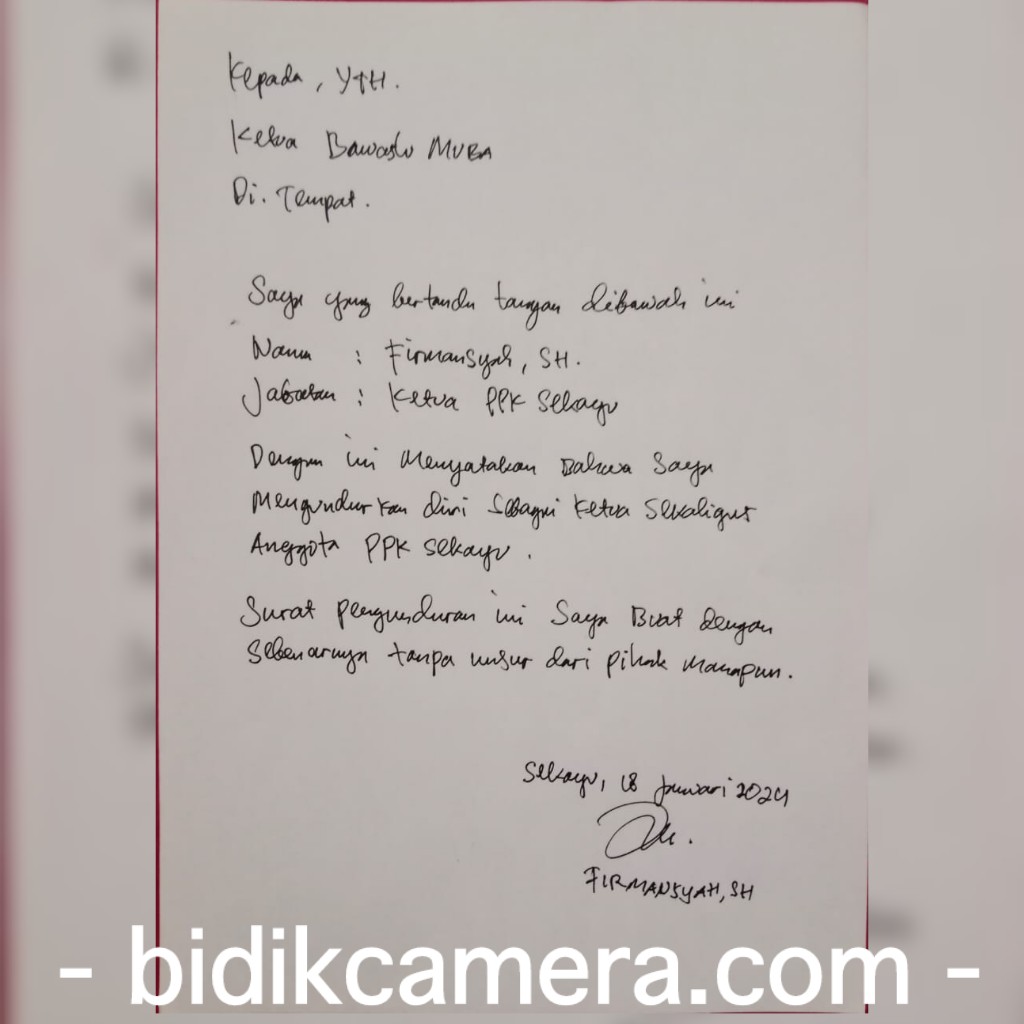 Kepada, YTH.
Ketua Bawaslu MUBA
Di. Tempat.
Saya yang bertanda tangan dibawah ini
Nama : Firmansyah, SH.
Jabatan : Ketua PPK Sekayu
Dengan ini Menyatakan Bahwa Saya
Mengundurkan diri Sebagai Ketua Sekaligus
Anggota PPK Sekayu.
Surat pengunduran ini Saya Buat dengan
Sebenarnya tanpa unsur dari pihak Manapun.
Sekayu, 18 Januari 2024
FIRMANSYAH, SH
- bidikcamera.com -